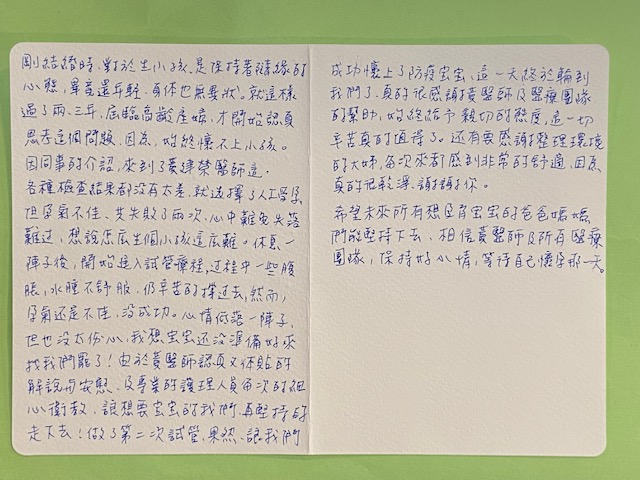 剛結婚時、對於生小孩、是保持著隨緣的
心態,畢竟還年輕、身体也無要狀。就這樣
過了兩、三年,底臨高齡產婦、才開始認真
思考這個問題、因為、始終懷不上小孩。
因同事的介紹,來到了黃建榮醫師這。
各種檢查結果都沒有太差、就選擇了人工受孕,
但孕氣不佳、共失敗了兩次、心中難免失落
難過、想說怎麼生個小孩這麼難。休息一
陣子後,開始進入試管療程,過程中一些腹
脹、水腫不舒服、仍辛苦的撐過去,然而,
孕氣還是不佳、沒成功。心情低落一陣子、
但也沒太份心、我想宝宝还沒準備好來
找我們罷了!由於黃醫師認真又体貼的
解說与安慰、及專業的護理人員每次的細
心衛教、讓想要宝宝的我們、再堅持的
走下去!做了第二次試管、果然、讓我們
成功懷上了防疫宝宝、這一天終於輪到
我們了、真的很感謝黃醫師及醫療團隊
的幫助、始終給予親切的態度,這一切
辛苦真的值得了。还有要感謝整理環境
的大姊,每次來都感到非常的舒適、因為
真的很乾淨、謝謝你。
希望未來所有想孕育宝宝的爸爸媽媽
們能堅持下去、相信黃醫師及所有醫療
團隊,保持好心情,等待自己懷孕那一天。